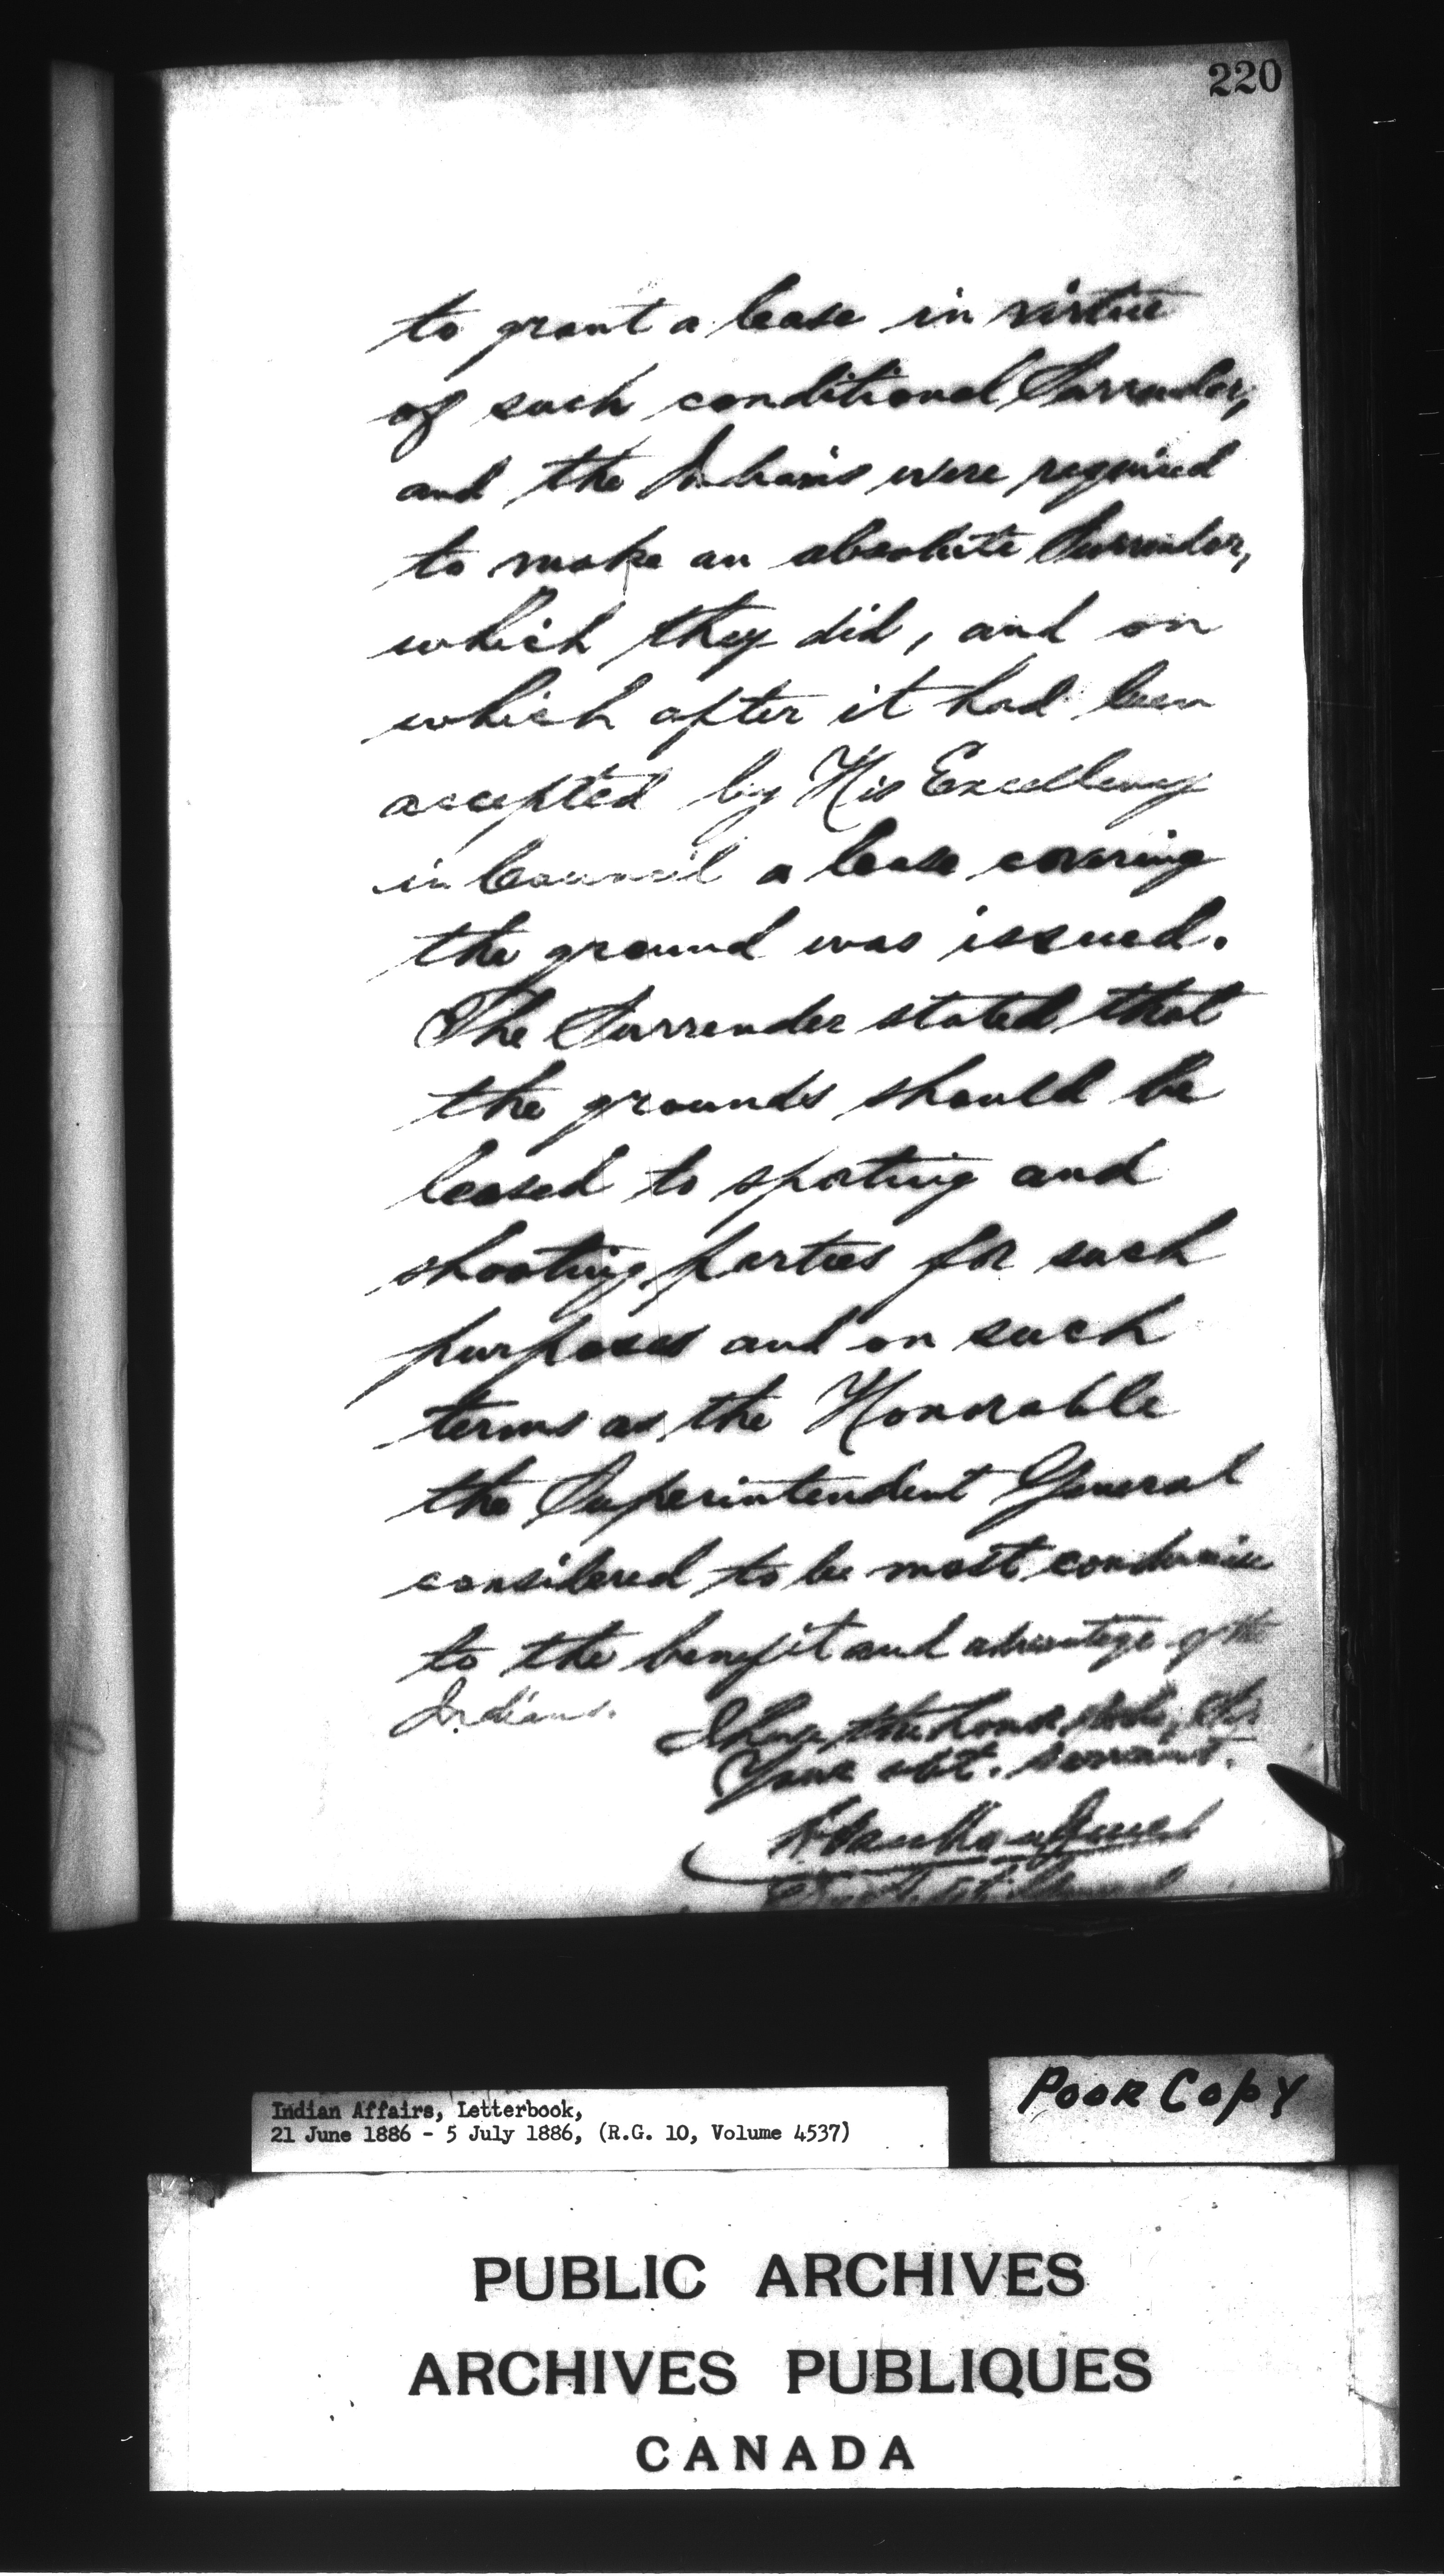 220
to grant a lease in virtue
of such conditional Surrender,
and the Indians were required
to make an absolute Surrender,
which they did, and on
which after it had been
accepted by His Excellency
in Council a lease covering
the ground was issued.
The Surrender stated that
the grounds should be
leased to sporting and
shooting parties for such
purposes and on such
terms as the Honorable
the Superintendent General
considered to be most conducive
to the benefit and advantage of the
Indians.
I have the honor to be, Sir,
Your obt. servant.
Indian Affairs, Letterbook,
21 June 1886 - 5 July 1886, (R.G. 10, Volume 4537)
POOR COPY
PUBLIC ARCHIVES
ARCHIVES PUBLIQUES
CANADA